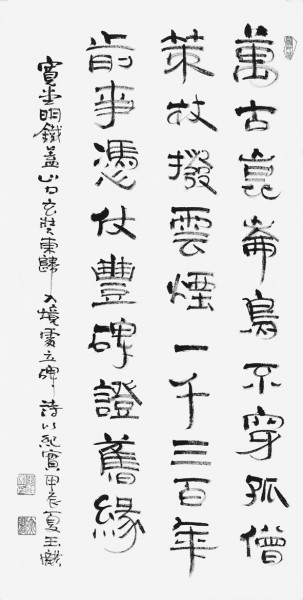 萬古崑崙鳥不穿孤僧
策杖撥雲煙一千三百年
前事憑仗豐碑證舊緣
寬堂明鐵蓋山口玄奘東歸入境處立碑詩以紀實甲辰夏